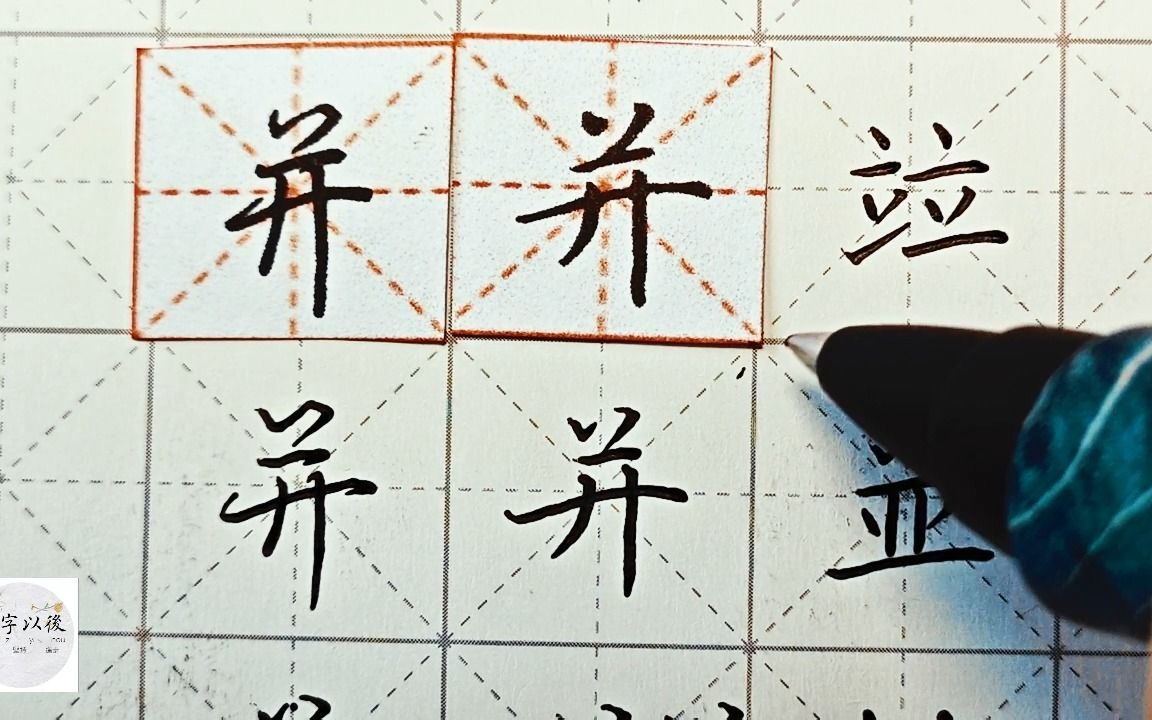 并 并 竝
并 并 並
字以後